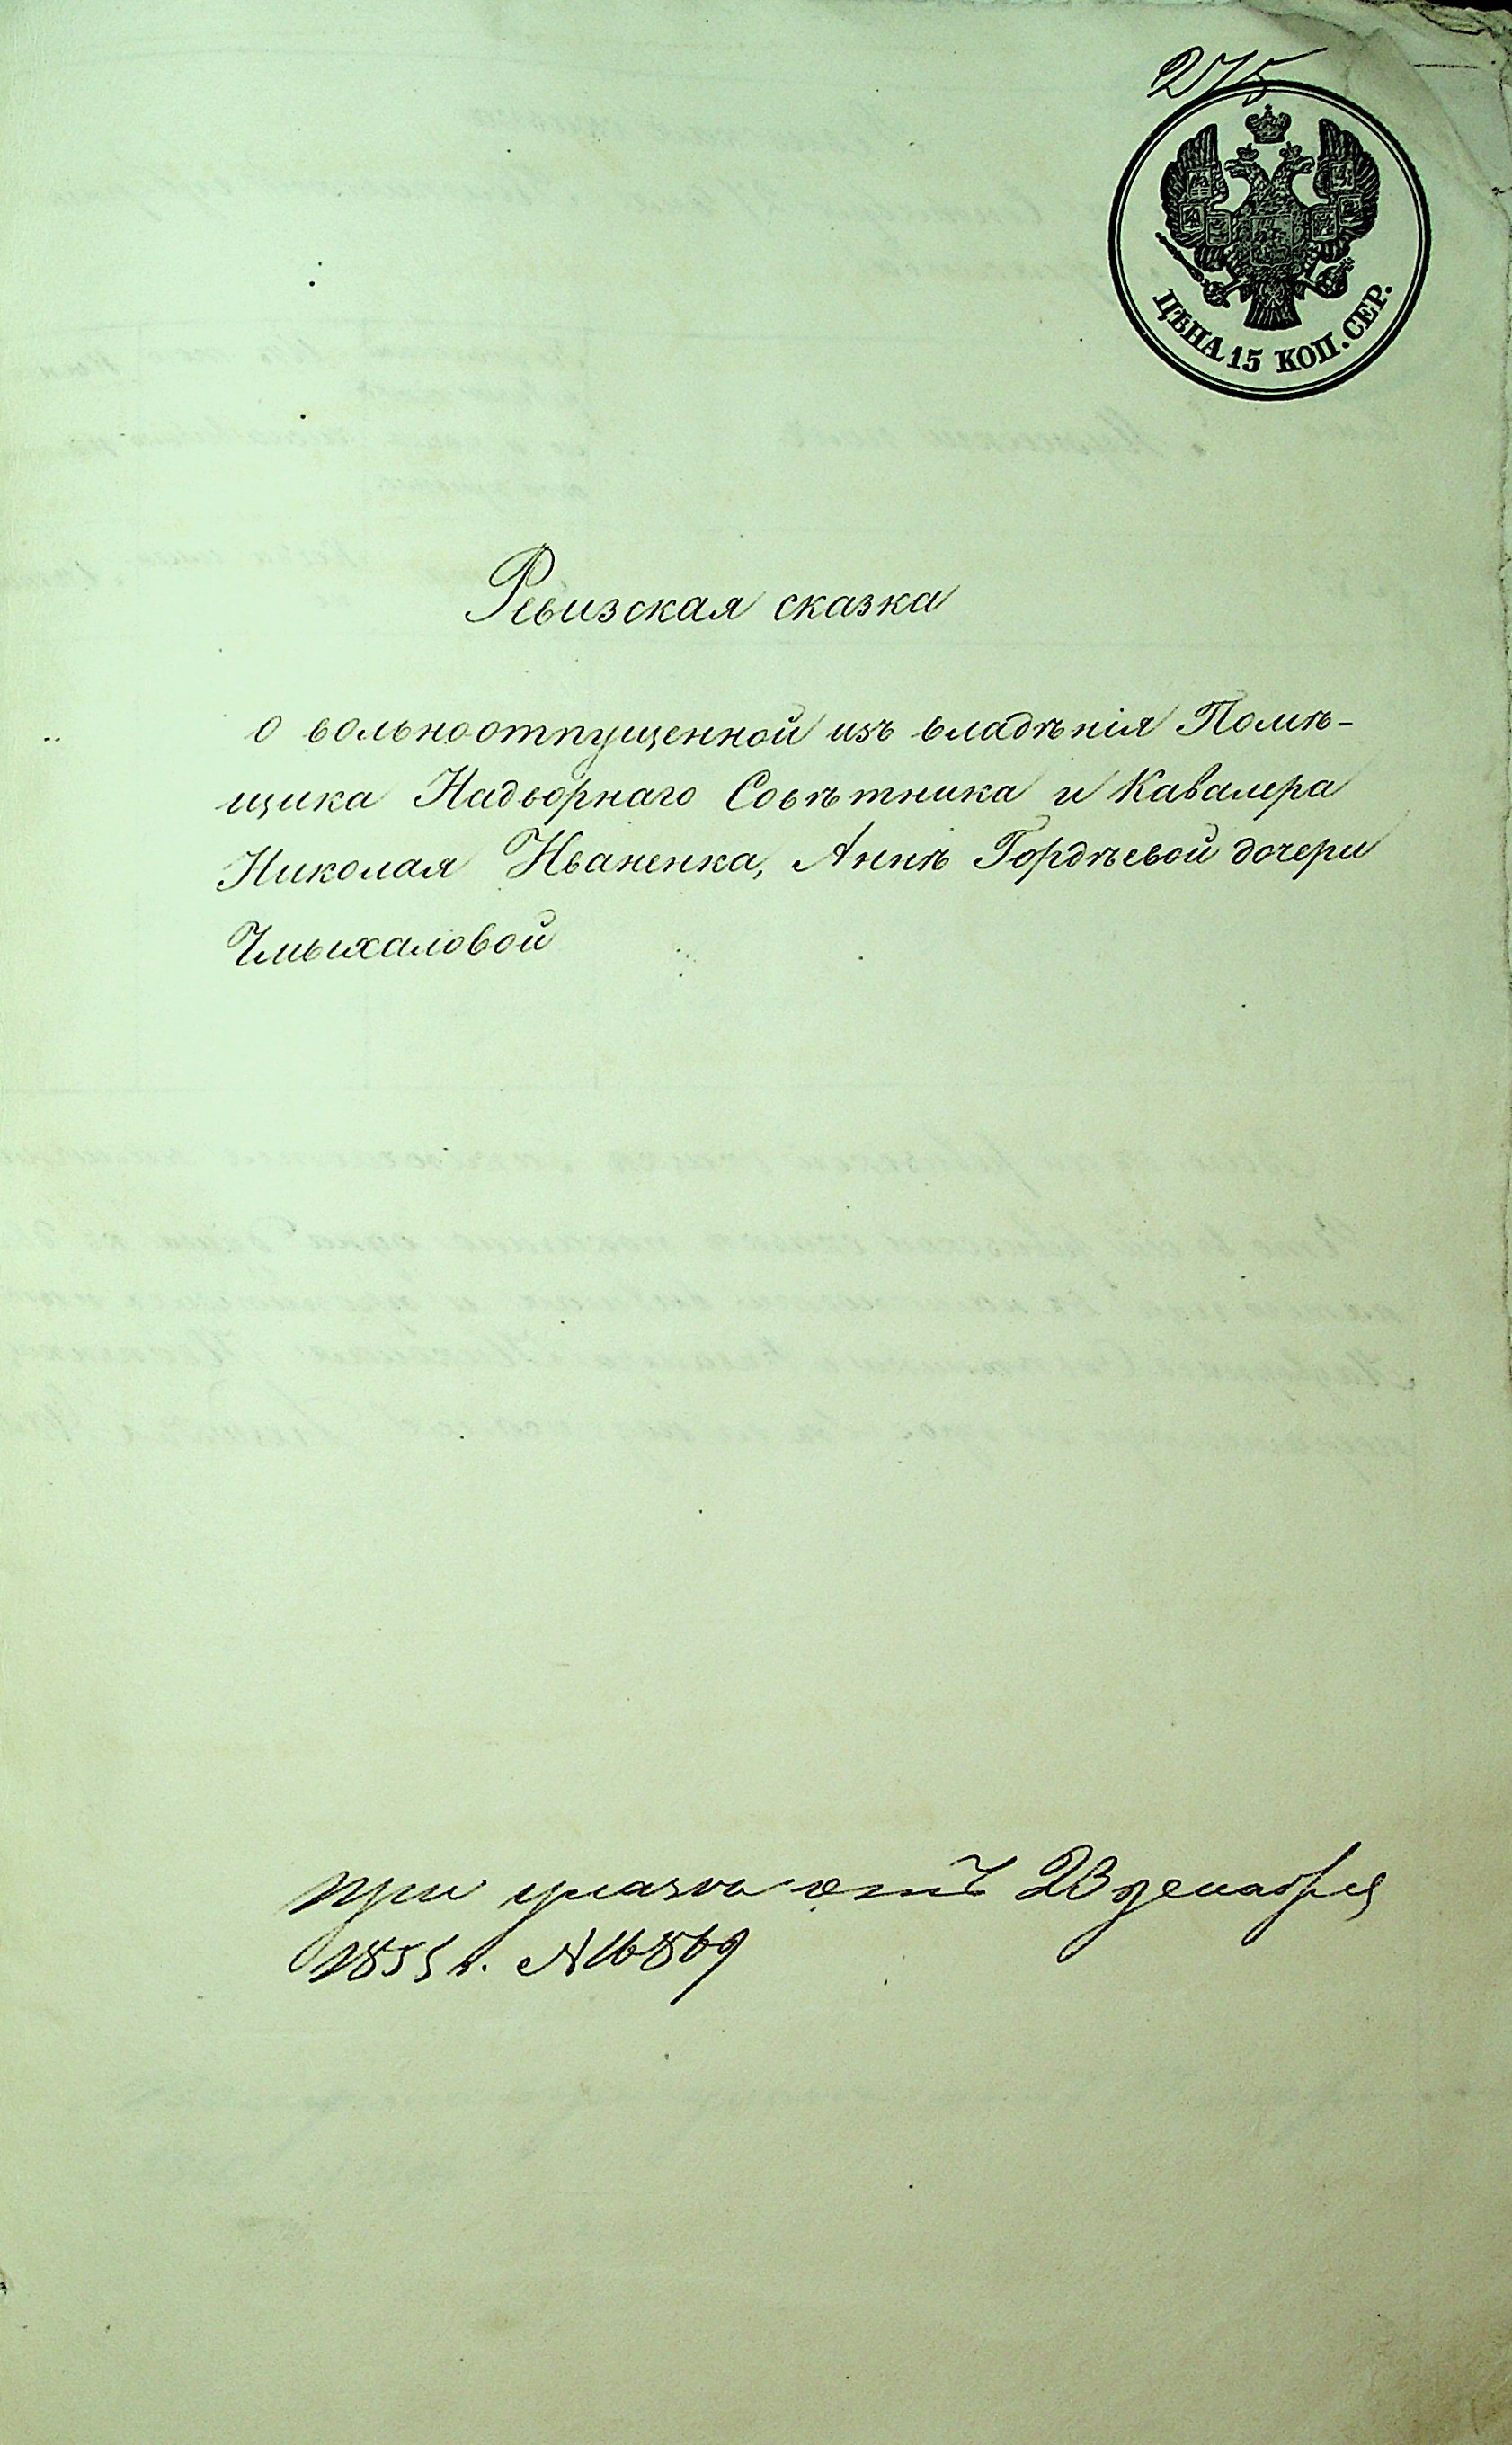 275
ЦѢНА 15 КОП. СЕР.
Ревизская сказка
о вольноотпущенной изъ владѣнія Помѣ-
щика Надворнаго Совѣтника и Кавалера
Николая Иваненка, Аннѣ Гордѣевой дочери
Чмыхаловой
при указѣ отъ 23 декабря
1855 г. №